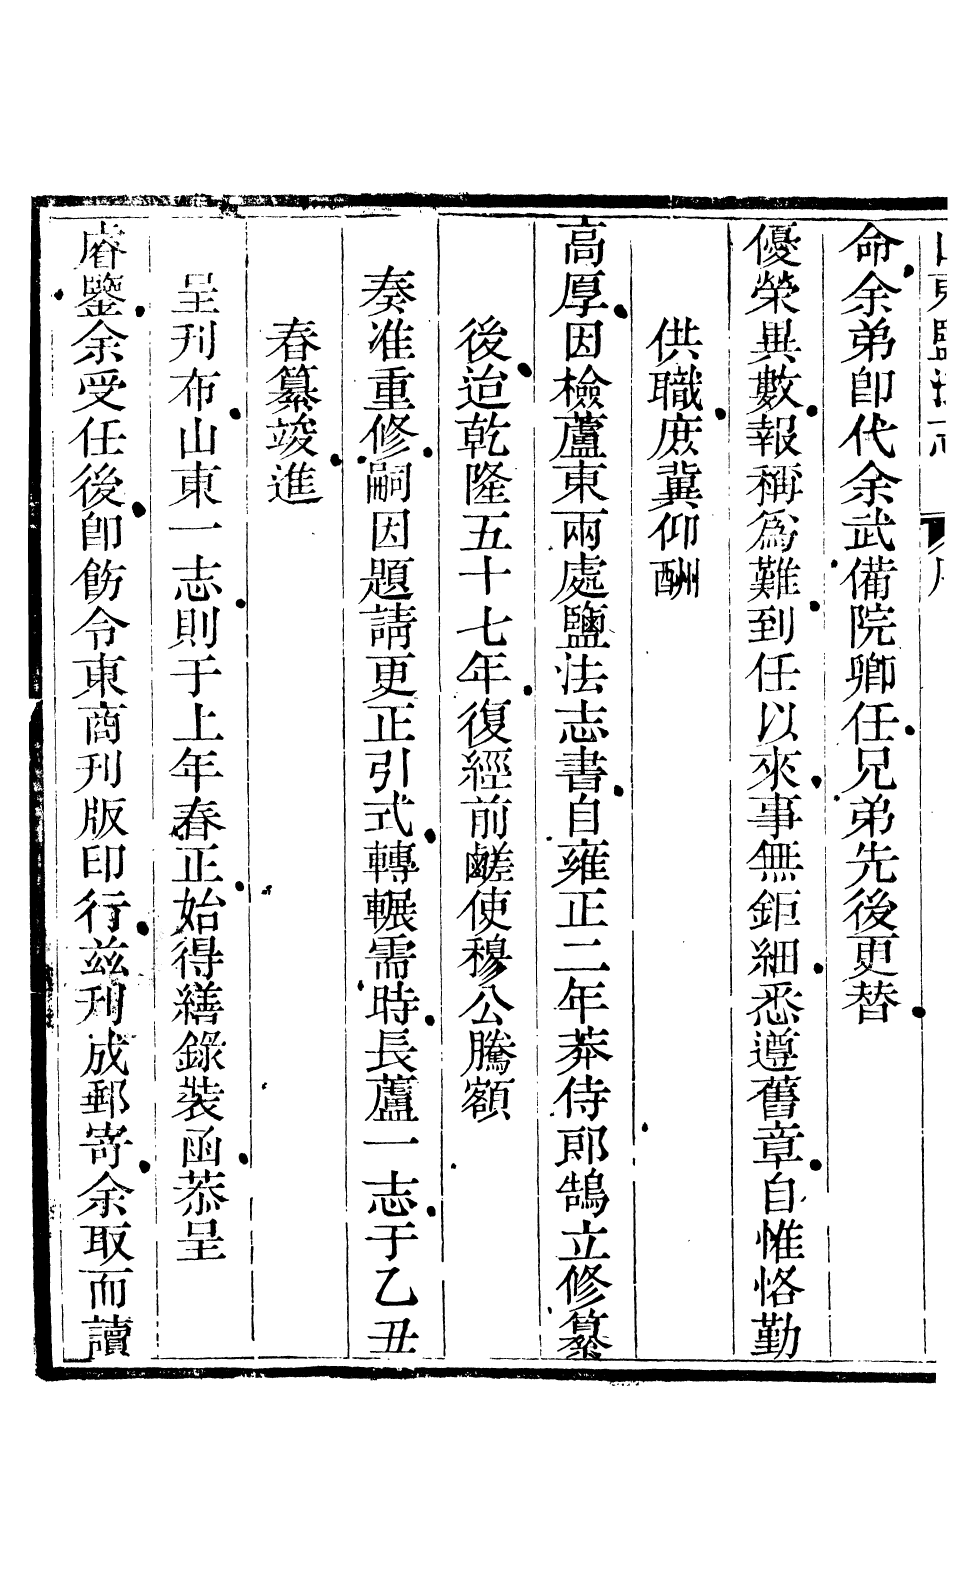 山東鹽法志 序
命余弟卽代余武備院卿任兄弟先後更替
優榮異數報稱爲難到任以來事無鉅細悉遵舊章自惟恪勤
供職庶冀仰酬
高厚因檢蘆東兩處鹽法志書自雍正二年莽侍郎鵠立修纂
後迨乾隆五十七年復經前鹺使穆公騰額
奏准重修嗣因題請更正引式轉輾需時長蘆一志于乙丑
春纂竣進
呈刊布山東一志則于上年春正始得繕錄裝函恭呈
睿鑒余受任後卽飭令東商刊版印行茲刊成郵寄余取而讀